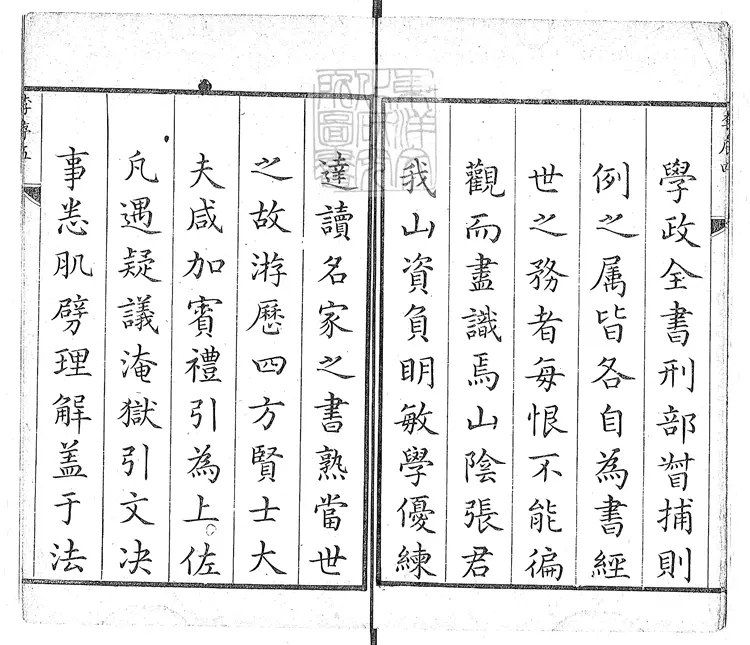 學政全書刑部督捕則
例之属皆各自為書經
世之務者每恨不能徧
觀而盡識焉山陰張君
我山資負明敏學優練
達讀名家之書熟當世
之故游歷四方賢士大
夫咸加賓禮引為上佐
凡遇疑議淹獄引文决
事悉肌劈理解盖于法